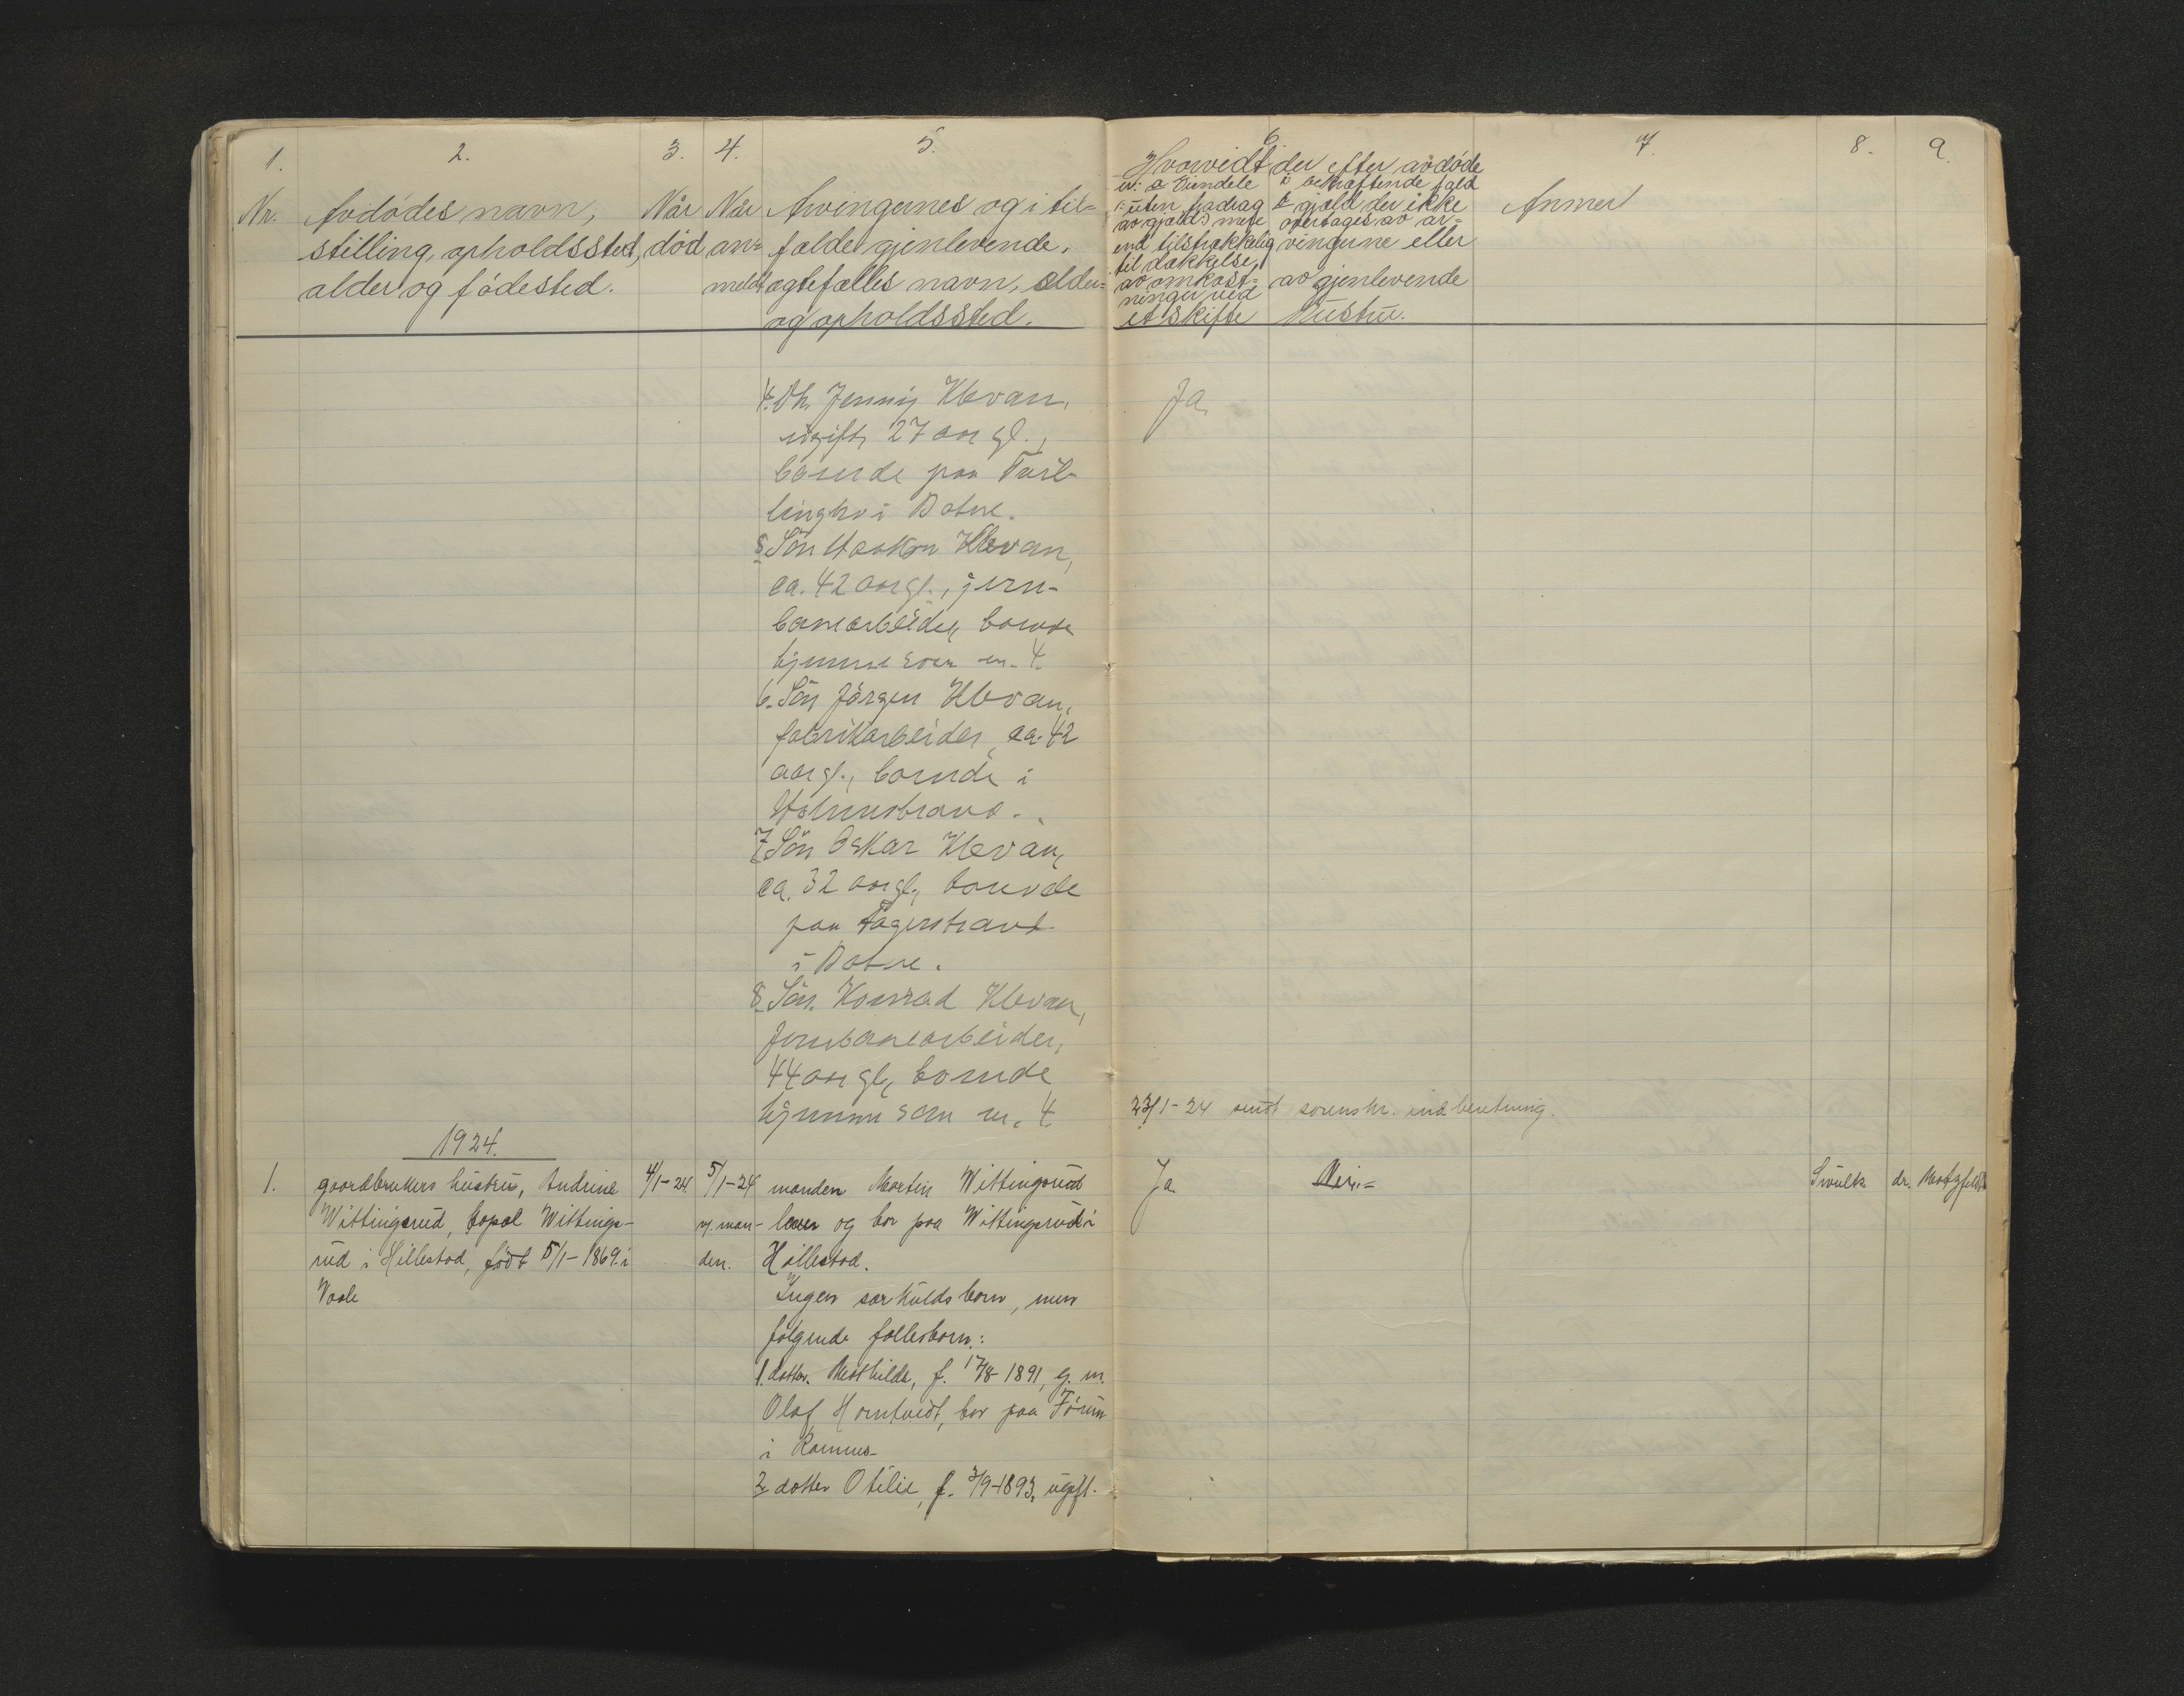 1. 2. 3. 4. 5. 6. 7. 8. 9.
Nr. Avdødes navn,
stilling, opholdssted,
alder og fødested.
Når
død
Når
an-
meldt
Arvingernes og i til-
fælde gjenlevende,
ægtefælles navn, alder
og opholdssted.
Hvorvidt der efter avdøde
er: a Eiendele
uten fradrag
av gjæld) mere
end tilstrækkelig
til dækkelse,
av omkost-
ninger ved
et skifte
i bekræftende fald
b gjæld der ikke
overtages av ar-
vingerne eller
av gjenlevende
hustru.
Anmer
4. Dtr. Jenny Klevan,
ugift, 27 aar gl.,
boende paa
i Botne.
Ja
5 Søn Haakon Klevan,
ca. 42 aar gl., jern-
banearbeider, boende
hjemme som nr. 4.
6. Søn Jørgen Klevan,
fabrikarbeider, ca. 42
aar gl., boende i
Holmestrand.
7 Søn Oskar Klevan,
ca. 32 aar gl., boende
paa Fagerstrand
i Botne.
8. Søn Konrad Klevan,
Jernbanearbeider,
44 aar gl., boende
hjemme som nr. 4.
23/1-24 sendt sorenskr. indberetning.
1924.
1. gaardbrukers hustru, Andrine
Wittingsrud, bopæl Wittings-
rud i Hillestad, født 5/1-1869 i
Vaale
4/1-24.
5/1-24
v. man-
den.
manden Martin Wittingsrud
lever og bor paa Wittingsrud i
Hillestad.
Ingen særkuldsborn, men
følgende fællesborn:
1. datter Mathilde, f. 17/8-1891, g. m.
Olaf Horntvedt, bor paa
i Ramnes
2. datter Otilie, f. 3/9-1893, ugift.
Ja
Nei.-
dr. Motzfeldt